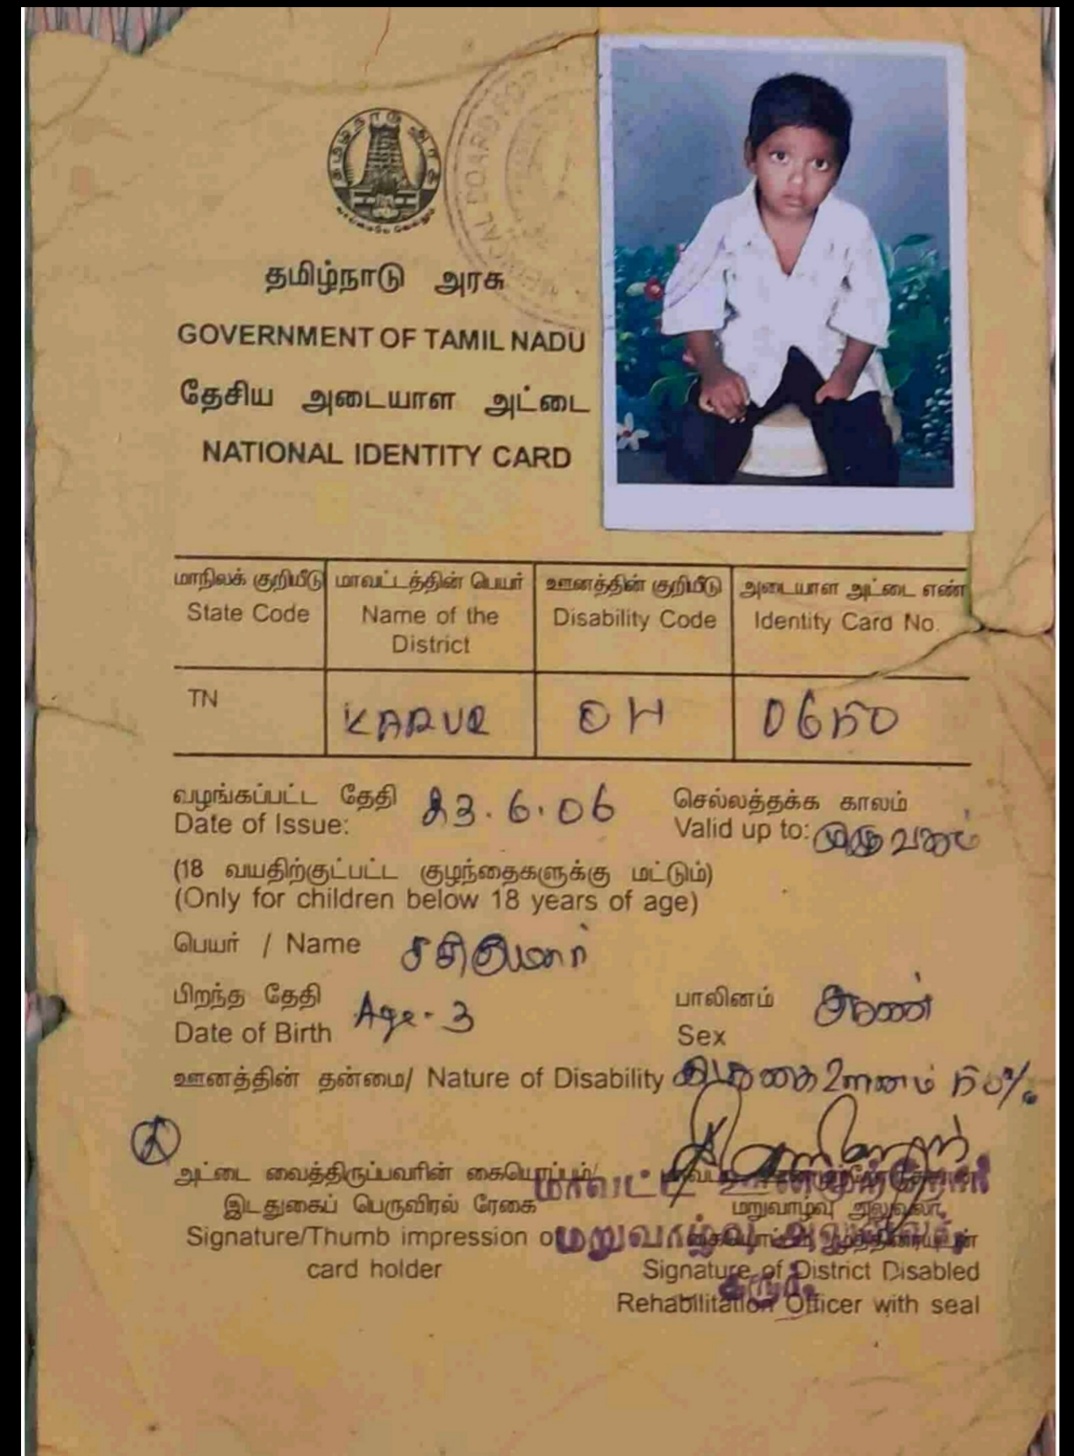 தமிழ்நாடு அரசு
தமிழ்நாடு அரசு
GOVERNMENT OF TAMIL NADU
தேசிய அடையாள அட்டை
NATIONAL IDENTITY CARD
மாநிலக் குறியீடு மாவட்டத்தின் பெயர் ஊனத்தின் குறியீடு அடையாள அட்டை எண்
State Code Name of the District Disability Code Identity Card No.
TN KARUR OH
வழங்கப்பட்ட தேதி செல்லத்தக்க காலம்
Date of Issue: 23.6.06 Valid up to:
(18 வயதிற்குட்பட்ட குழந்தைகளுக்கு மட்டும்)
(Only for children below 18 years of age)
பெயர் / Name சசிகுமார்
பிறந்த தேதி பாலினம் ஆண்
Date of Birth Age-3 Sex
ஊனத்தின் தன்மை/ Nature of Disability ஊனம்
அட்டை வைத்திருப்பவரின் கையொப்பம்/
இடதுகைப் பெருவிரல் ரேகை
Signature/Thumb impression of
card holder
மாவட்ட
மறுவாழ்வு அலுவலர்,
கரூர்.
மறுவாழ்வு அலுவலர்
Signature of District Disabled
Rehabilitation Officer with seal